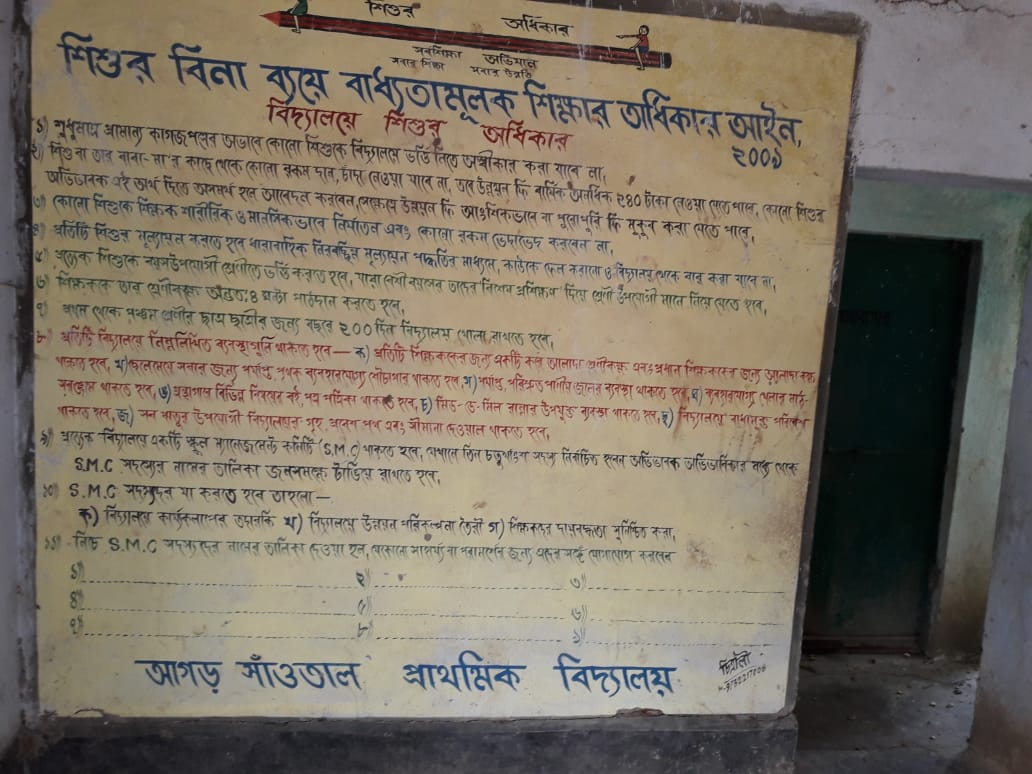 শিশুর অধিকার
সর্বশিক্ষা অভিযান
সবার শিক্ষা সবার উন্নতি
শিশুর বিনা ব্যয়ে বাধ্যতামূলক শিক্ষার অধিকার আইন, ২০০৯
বিদ্যালয়ে শিশুর অধিকার
১) শুধুমাত্র প্রামান্য কাগজপত্রের অভাবে কোনো শিশুকে বিদ্যালয়ে ভর্তি নিতে অস্বীকার করা যাবে না,
২) শিশু বা তার বাবা-মা'র কাছে থেকে কোনো রকম দান, চাঁদা নেওয়া যাবে না, তবে উন্নয়ন ফি বার্ষিক অনধিক ২৪০ টাকা নেওয়া যেতে পারে, কোনো শিশুর
অভিভাবক এই অর্থ দিতে অসমর্থ হলে আবেদন করবেন, সেক্ষেত্রে উন্নয়ন ফি আংশিকভাবে বা পুরোপুরি ফি মুকুব করা যেতে পারে,
৩) কোনো শিশুকে শিক্ষক শারীরিক ও মানসিকভাবে নির্যাতন এবং কোনো রকম ভেদাভেদ করবেন না,
৪) প্রতিটি শিশুর মূল্যায়ন করতে হবে ধারাবাহিক নিরবচ্ছিন্ন মূল্যায়ন পদ্ধতির মাধ্যমে, কাউকে ফেল করানো ও বিদ্যালয় থেকে বার করা যাবে না,
৫) প্রত্যেক শিশুকে বয়সউপযোগী শ্রেণীতে ভর্তি করতে হবে, যারা বেশী বয়সের তাদের বিশেষ প্রশিক্ষণ দিয়ে শ্রেণী উপযোগী মানে নিয়ে যেতে হবে,
৬) শিক্ষককে তার শ্রেণীকক্ষে অন্ততঃ ৪ ঘন্টা পাঠদান করতে হবে,
৭) প্রথম থেকে পঞ্চম শ্রেণীর ছাত্র ছাত্রীর জন্য বছরে ২০০ দিন বিদ্যালয় খোলা রাখতে হবে,
৮) প্রতিটি বিদ্যালয়ে নিম্নলিখিত ব্যবস্থাগুলি থাকতে হবে— ক) প্রতিটি শিক্ষকের জন্য একটি করে আলাদা শ্রেণীকক্ষ এবং প্রধান শিক্ষকের জন্য আলাদা কক্ষ
থাকতে হবে, খ) ছেলেমেয়ে সবার জন্য পর্যাপ্ত পৃথক ব্যবহারযোগ্য শৌচাগার থাকতে হবে, গ) পর্যাপ্ত পরিশ্রুত পানীয় জলের ব্যবস্থা থাকতে হবে, ঘ) ব্যবহারযোগ্য খেলার মাঠ-
সরঞ্জাম থাকতে হবে, ঙ) গ্রন্থাগারে বিভিন্ন বিষয়ের বই, পত্র পত্রিকা থাকতে হবে, চ) মিড-ডে-মিল রান্নার উপযুক্ত ব্যবস্থা থাকতে হবে, ছ) বিদ্যালয়ে বাধামুক্ত পরিবেশ
থাকতে হবে, জ) সব ঋতুর উপযোগী বিদ্যালয়-গৃহ, প্রবেশ পথ এবং সীমানা দেওয়াল থাকতে হবে,
৯) প্রত্যেক বিদ্যালয়ে একটি স্কুল ম্যানেজমেন্ট কমিটি (S.M.C) থাকতে হবে, যেখানে তিন চতুর্থাংশ সদস্য নির্বাচিত হবেন অভিভাবক অভিভাবিকার মধ্য থেকে
S.M.C সদস্যের নামের তালিকা জনসমক্ষে টাঙিয়ে রাখতে হবে,
১০) S.M.C সদস্যদের যা করতে হবে তাহলো—
ক) বিদ্যালয়ে কার্যকলাপের তদারকি খ) বিদ্যালয়ে উন্নয়ন পরিকল্পনা তৈরী গ) শিক্ষকদের দায়বদ্ধতা সুনিশ্চিত করা,
১১) নিম্নে S.M.C সদস্যদের নামের তালিকা দেওয়া হল, যেকোনো সাহায্য বা পরামর্শের জন্য এদের সঙ্গে যোগাযোগ করবেন
১) ২) ৩)
৪) ৫) ৬)
৭) ৮) ৯)
আগড় সাঁওতাল প্রাথমিক বিদ্যালয়